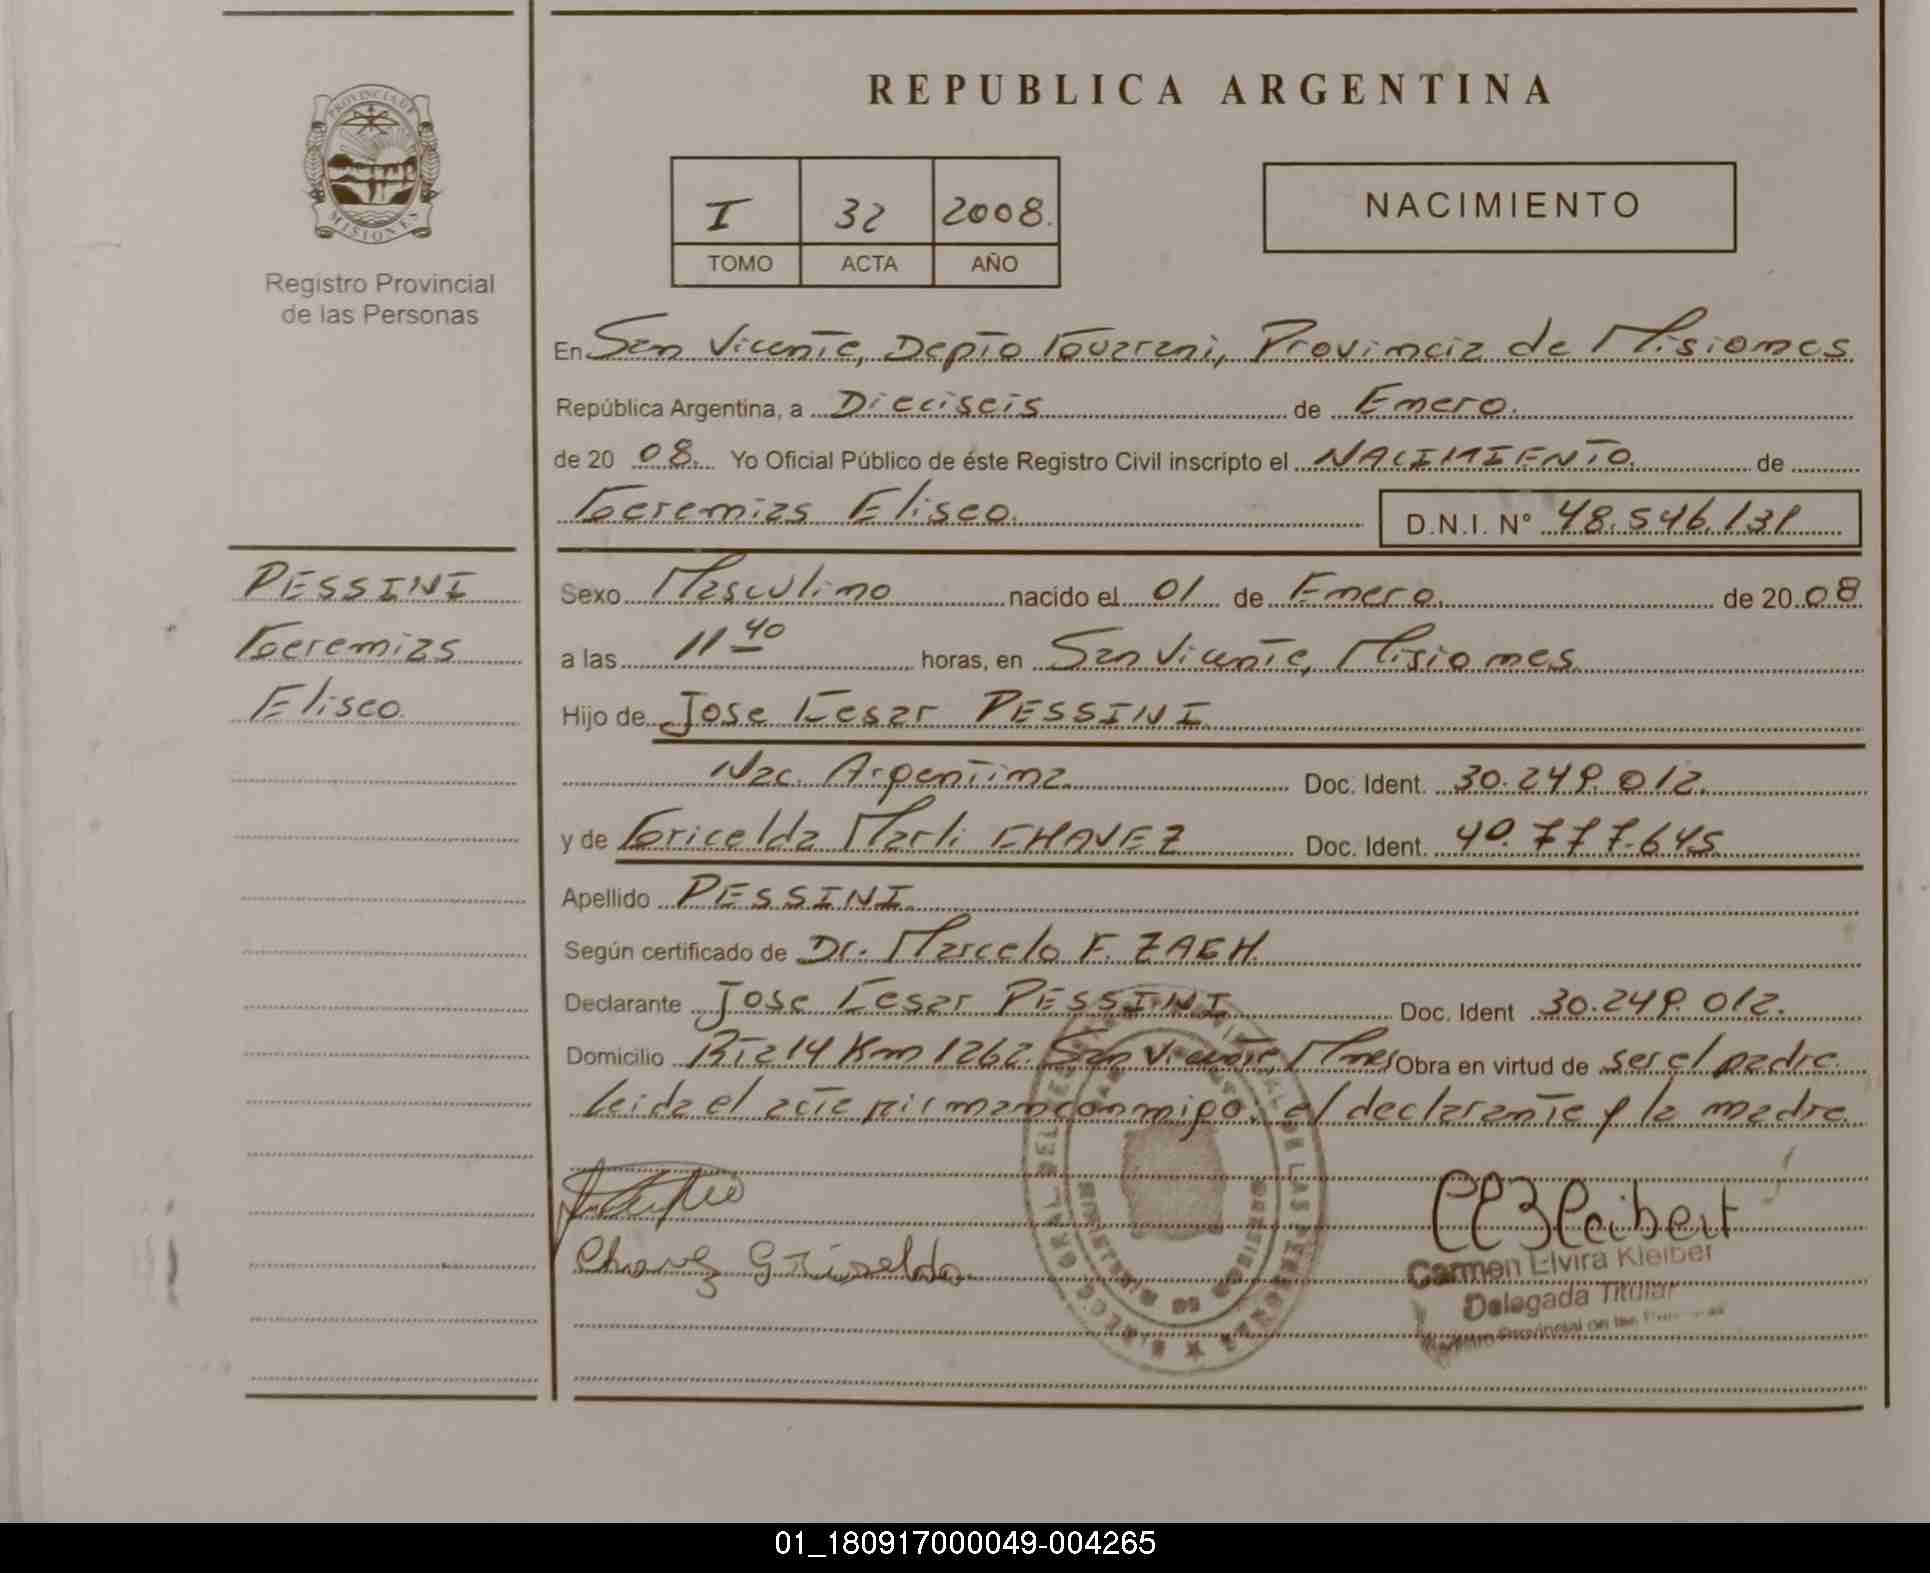 PROVINCIA DE
MISIONES
Registro Provincial
de las Personas
REPUBLICA ARGENTINA
I 32 2008.
TOMO ACTA AÑO
NACIMIENTO
En San Vicente, Depto Guarani, Provincia de Misiones
República Argentina, a Dieciseis de Enero.
de 20 08. Yo Oficial Público de éste Registro Civil inscripto el NACIMIENTO. de
Geremias Eliseo. D.N.I. N° 48.546.131
PESSINI
Geremias
Eliseo.
Sexo Masculino nacido el 01 de Enero. de 20 08
a las 11 40 horas, en San Vicente, Misiones
Hijo de Jose Cesar PESSINI
Nac. Argentina. Doc. Ident. 30.249.012.
y de Gricelda Marli CHAVEZ Doc. Ident. 40.777.645
Apellido PESSINI.
Según certificado de Dr. Marcelo F. ZAEH.
Declarante Jose Cesar PESSINI Doc. Ident 30.249.012.
Domicilio RTa 14 Km 1262. San Vicente, Mnes Obra en virtud de ser el padre.
Leida el acta firman conmigo, el declarante y la madre.
Chavez Griselda
Carmen Elvira Kleiber
Delegada Titular
01_180917000049-004265